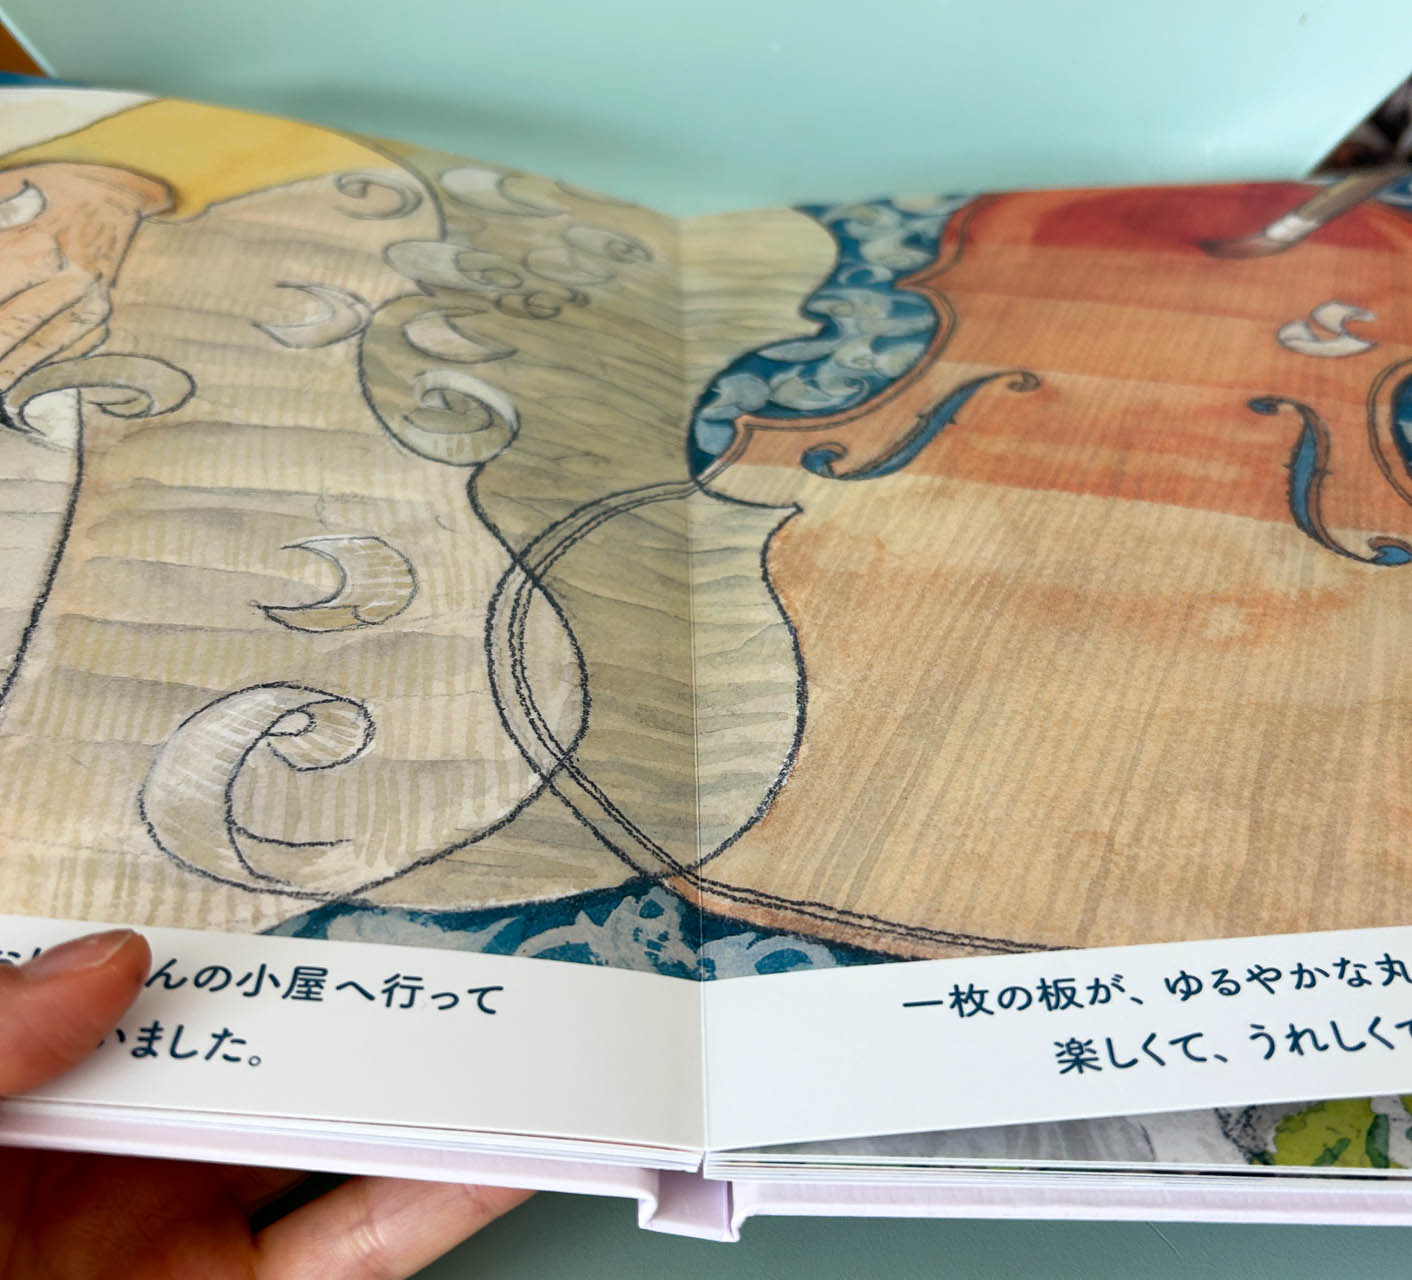 んの小屋へ行って
いました。
一枚の板が、ゆるやかな丸
楽しくて、うれしくて